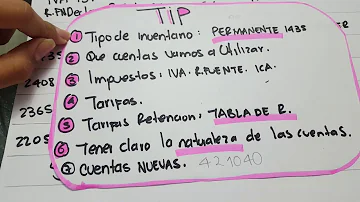 R.FNDer
TIP
① Tipo de inventario: PERMANENTE 1435
② Que cuentas vamos a Utilizar.
2408
③ Impuestos: IVA. R.FUENTE. ICA.
④ Tarifas.
2365
⑤ Tarifas Retencion: TABLA DE R.
2205
⑥ Tener claro la naturaleza de las cuentas.
⑦ Cuentas NUEVAS. 421040